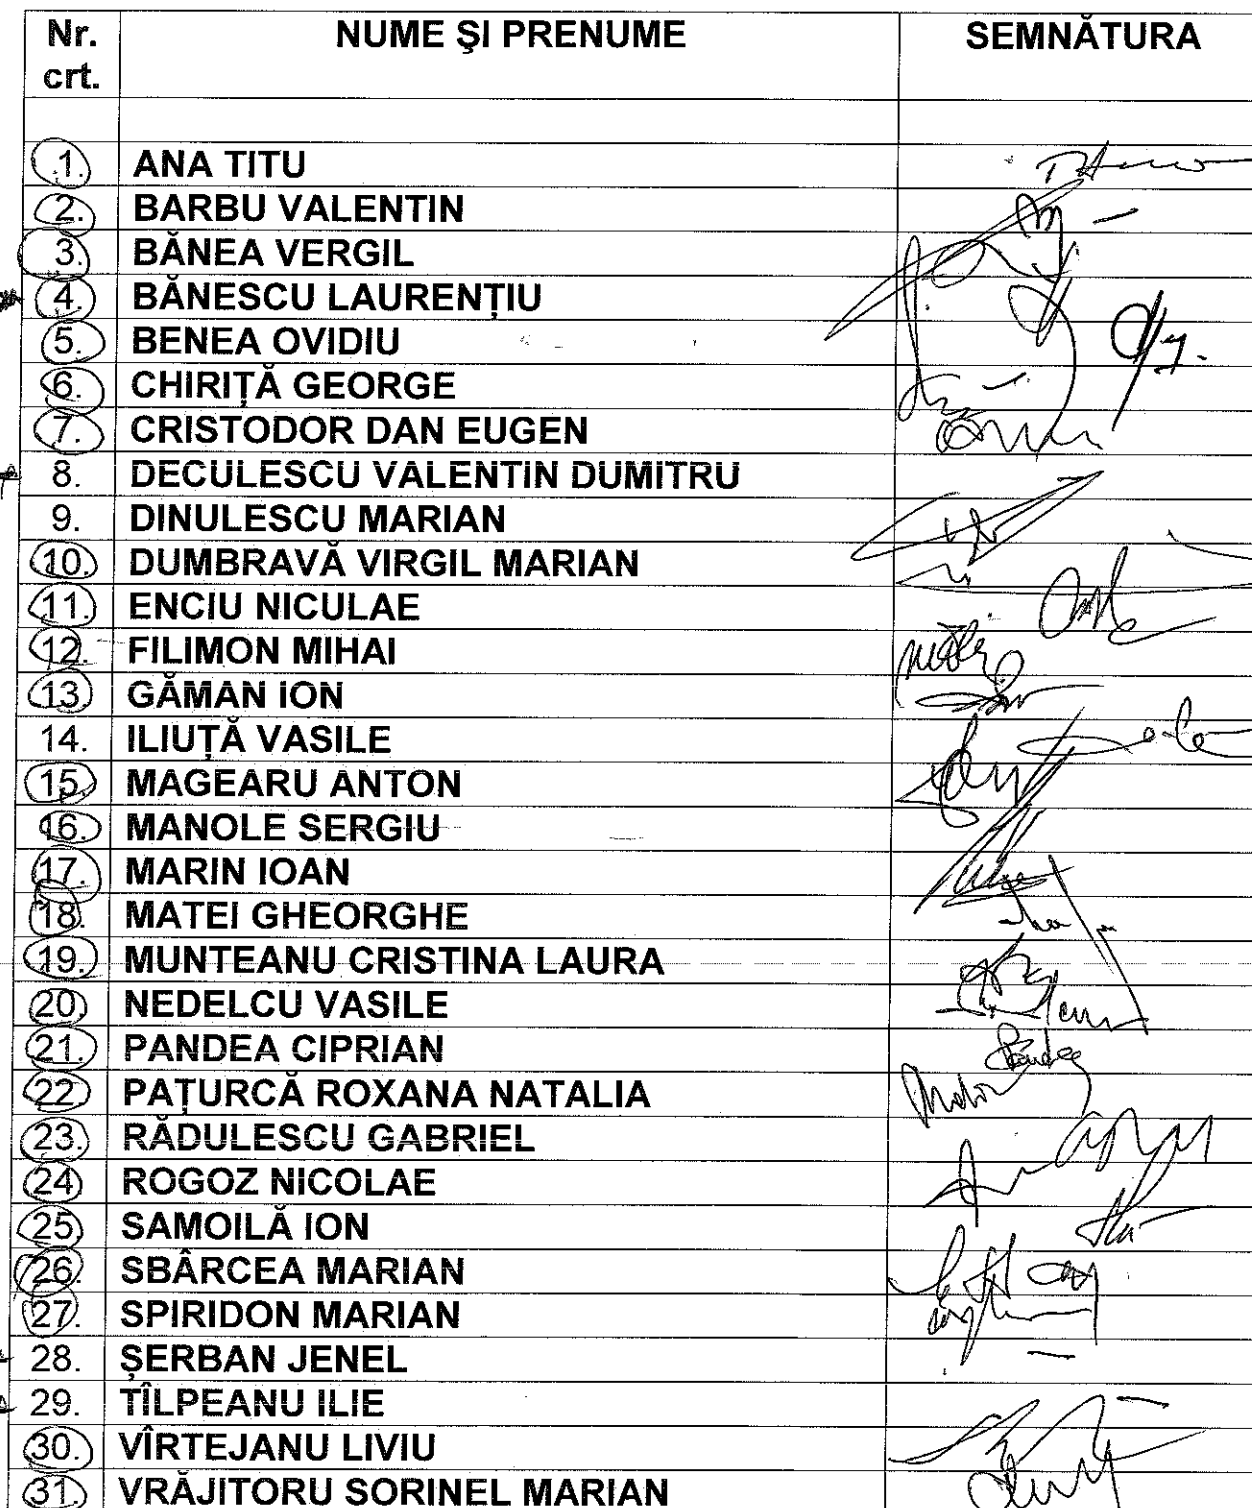 Nr. crt. NUME ŞI PRENUME SEMNĂTURA
1. ANA TITU
2. BARBU VALENTIN
3. BĂNEA VERGIL
4. BĂNESCU LAURENȚIU
5. BENEA OVIDIU
6. CHIRIȚĂ GEORGE
7. CRISTODOR DAN EUGEN
8. DECULESCU VALENTIN DUMITRU
9. DINULESCU MARIAN
10. DUMBRAVĂ VIRGIL MARIAN
11. ENCIU NICULAE
12. FILIMON MIHAI
13. GĂMAN ION
14. ILIUȚĂ VASILE
15. MAGEARU ANTON
16. MANOLE SERGIU
17. MARIN IOAN
18. MATEI GHEORGHE
19. MUNTEANU CRISTINA LAURA
20. NEDELCU VASILE
21. PANDEA CIPRIAN
22. PAȚURCĂ ROXANA NATALIA
23. RĂDULESCU GABRIEL
24. ROGOZ NICOLAE
25. SAMOILĂ ION
26. SBÂRCEA MARIAN
27. SPIRIDON MARIAN
28. ȘERBAN JENEL
29. TÎLPEANU ILIE
30. VÎRTEJANU LIVIU
31. VRĂJITORU SORINEL MARIAN